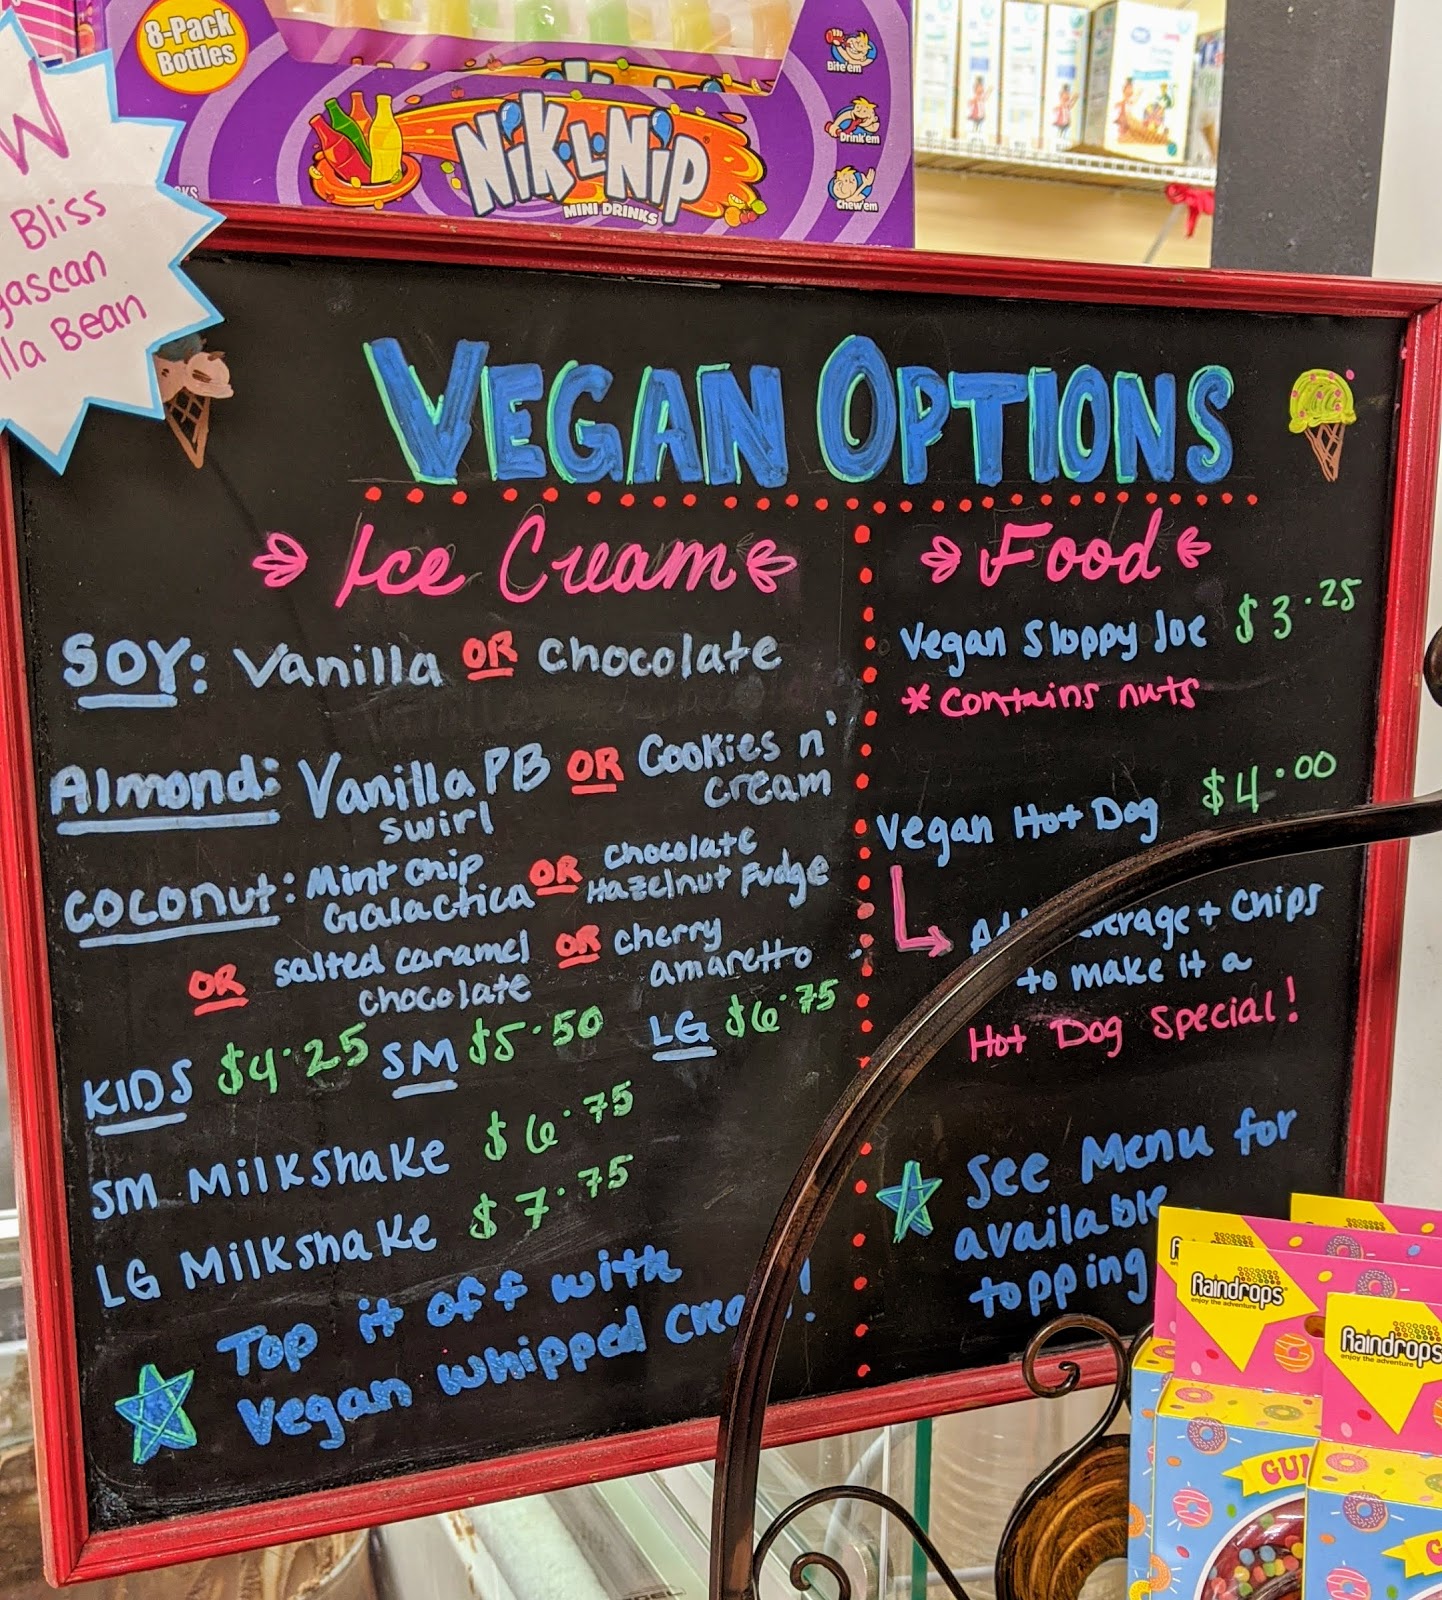 8-Pack
Bottles
NIK·L·NIP
MINI DRINKS
Bite'em
Drink'em
Chew'em
W
Bliss
Bean
VEGAN OPTIONS
Ice Cream
SOY: Vanilla OR chocolate
Almond: Vanilla PB swirl OR Cookies n' cream
Coconut: Mint Chip Galactica OR chocolate Hazelnut Fudge
OR salted caramel chocolate OR cherry amaretto
KIDS $4.25 SM $5.50 LG $6.75
SM Milkshake $6.75
LG Milkshake $7.75
Top it off with
Vegan whipped
Food
Vegan Sloppy Joe $3.25
* contains nuts
Vegan Hot Dog $4.00
+ chips
to make it a
Hot Dog Special!
See Menu for
available
topping
Raindrops
enjoy the adventure
Raindrops
enjoy the adventure